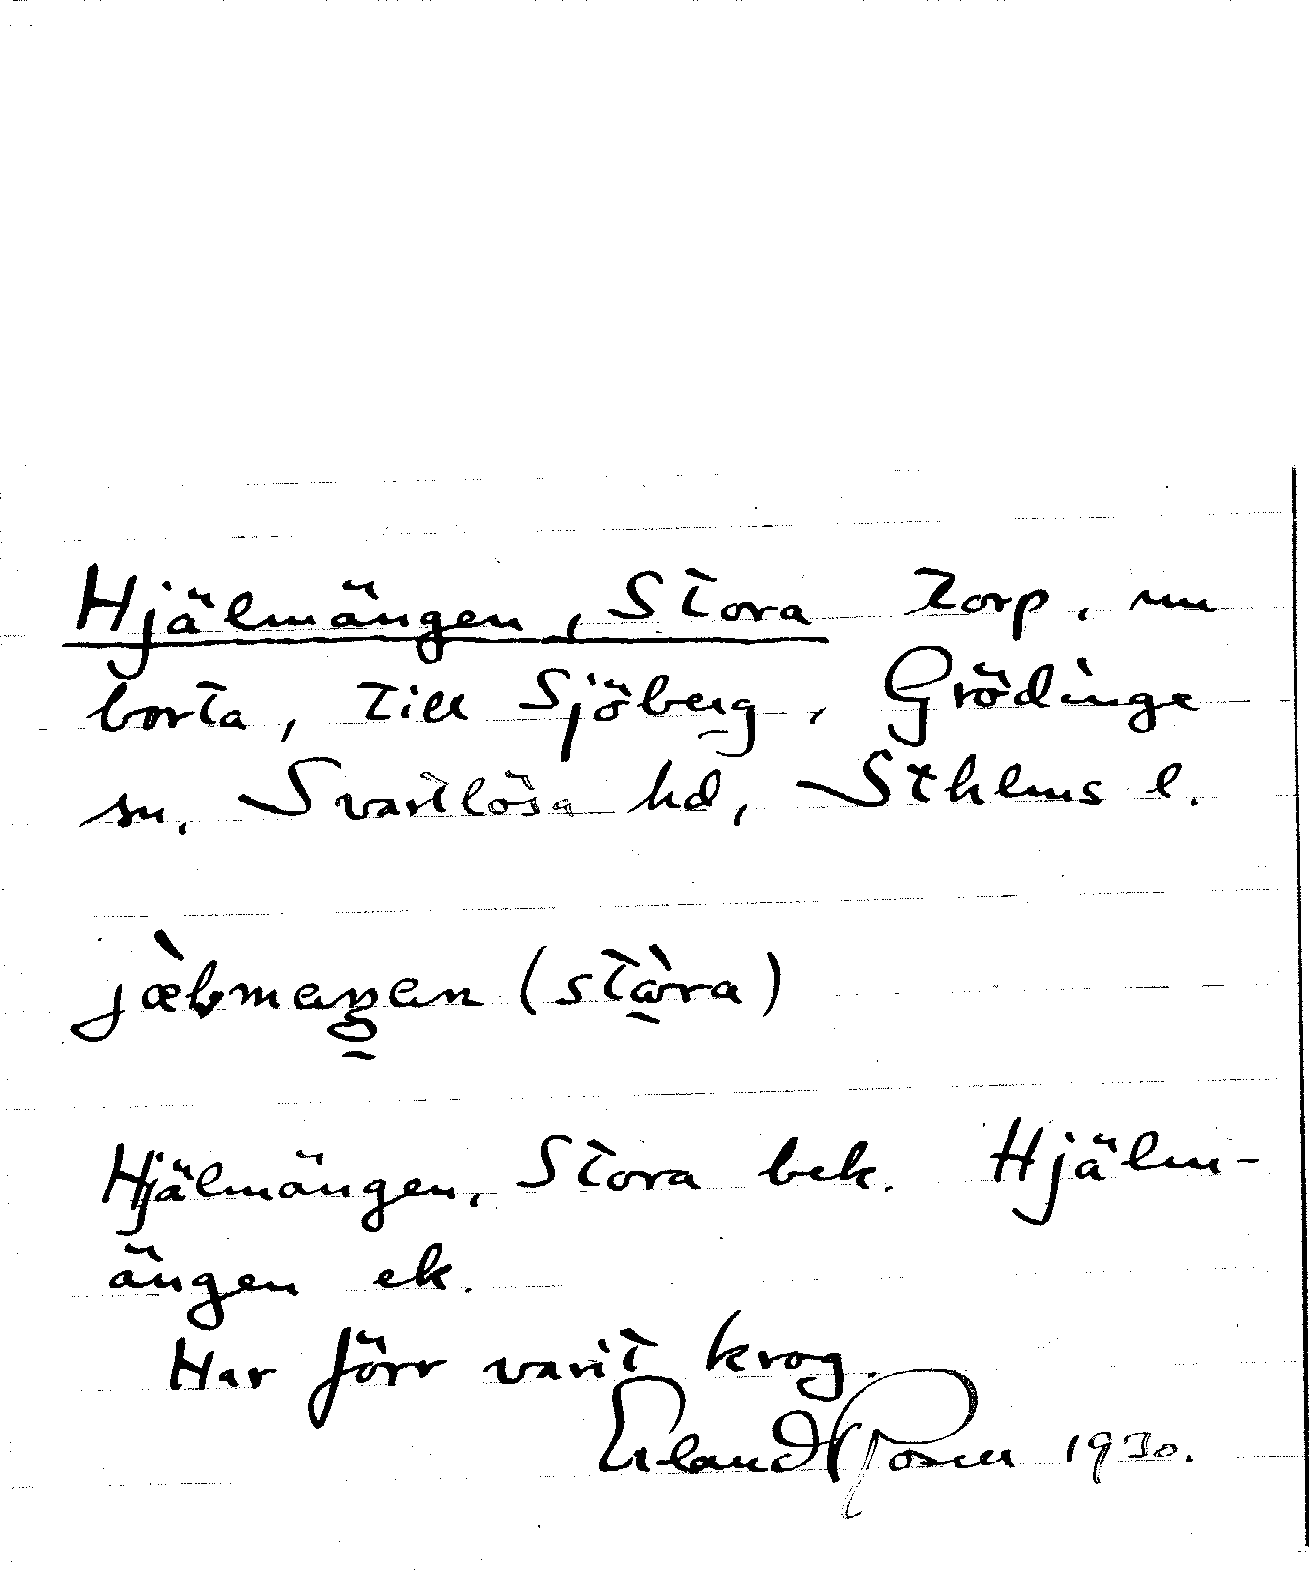 Hjälmängen, Stora torp, nu
borta, till Sjöberg, Grödinge
sn. Svartlösa hd, Sthlms l.
(stòra)
Hjälmängen, Stora bek. Hjälm-
ängen ek.
Har förr varit krog.
Erland Rosell 1930.